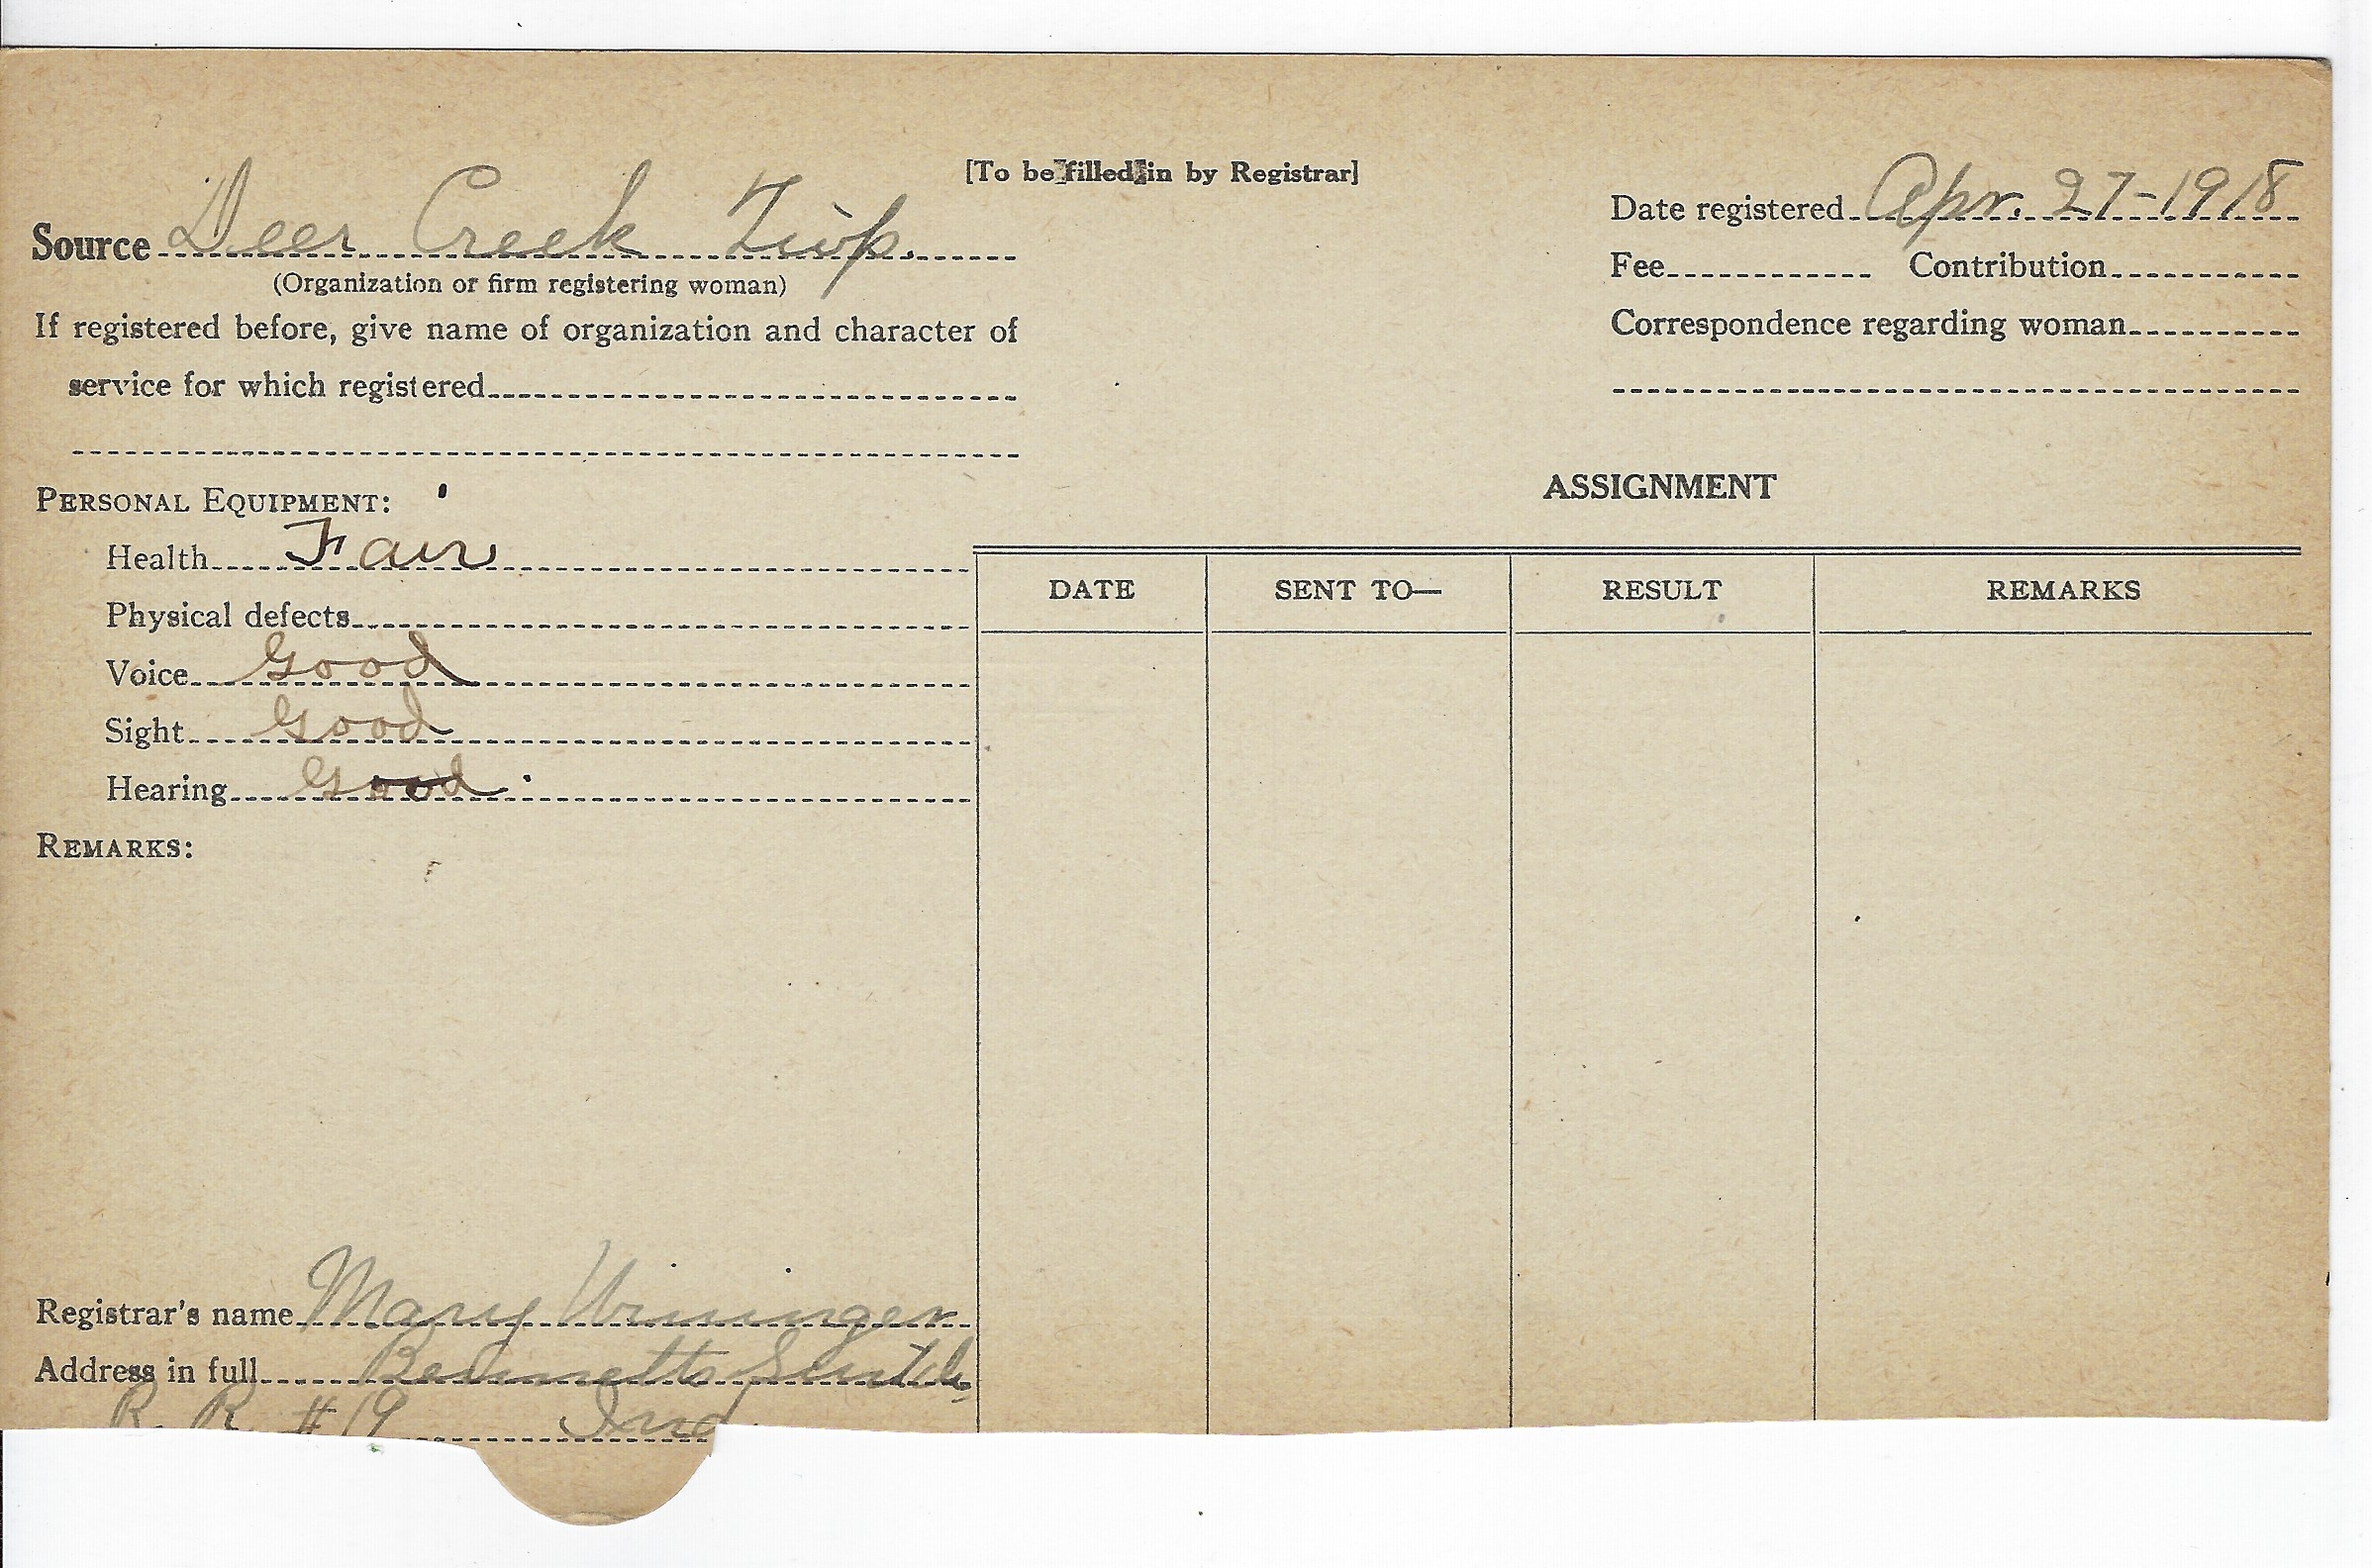 [To be filled in by Registrar]
Source Deer Creek Twp.
(Organization or firm registering woman)
If registered before, give name of organization and character of
service for which registered
Date registered Apr. 27-1918
Fee Contribution
Correspondence regarding woman
PERSONAL EQUIPMENT:
Health Fair
Physical defects
Voice Good
Sight Good
Hearing Good
REMARKS:
ASSIGNMENT
DATE SENT TO— RESULT REMARKS
Registrar's name Mary Wininger
Address in full Bennetts Switch,
R. R. #19 Ind